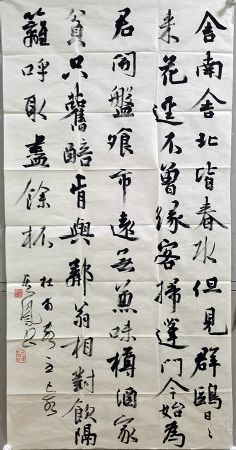 舍南舍北皆春水但見群鷗日〻
来花逕不曾緣客掃蓬門今始為
君開盤飧市遠無兼味樽酒家
貧只舊醅肯與鄰翁相對飲隔
籬呼取盡餘杯
杜甫客至